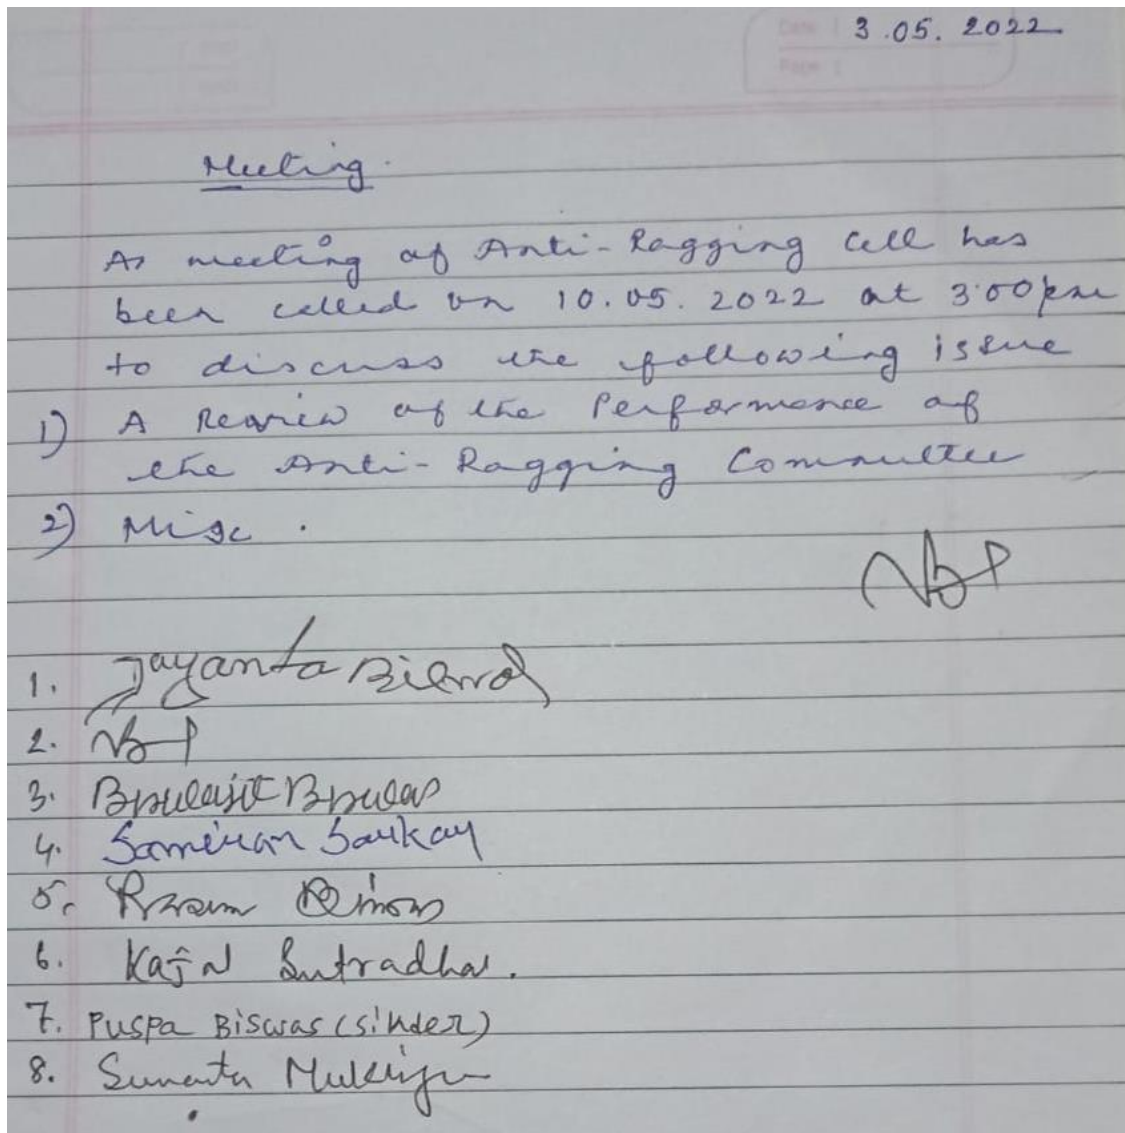 Date : 3.05.2022
Page :
Meeting.
A meeting of Anti-Ragging Cell has
been called on 10.05.2022 at 3:00pm
to discuss the following issue
1) A Review of the Performance of
the Anti-Ragging Committee
2) Misc.
1. Jayanta Biswas
2.
3. Biswajit Biswas
4. Samiran Sarkar
5.
6. Kajal Sutradhar.
7. Puspa Biswas (sikder)
8. Sunanta Mukherjee